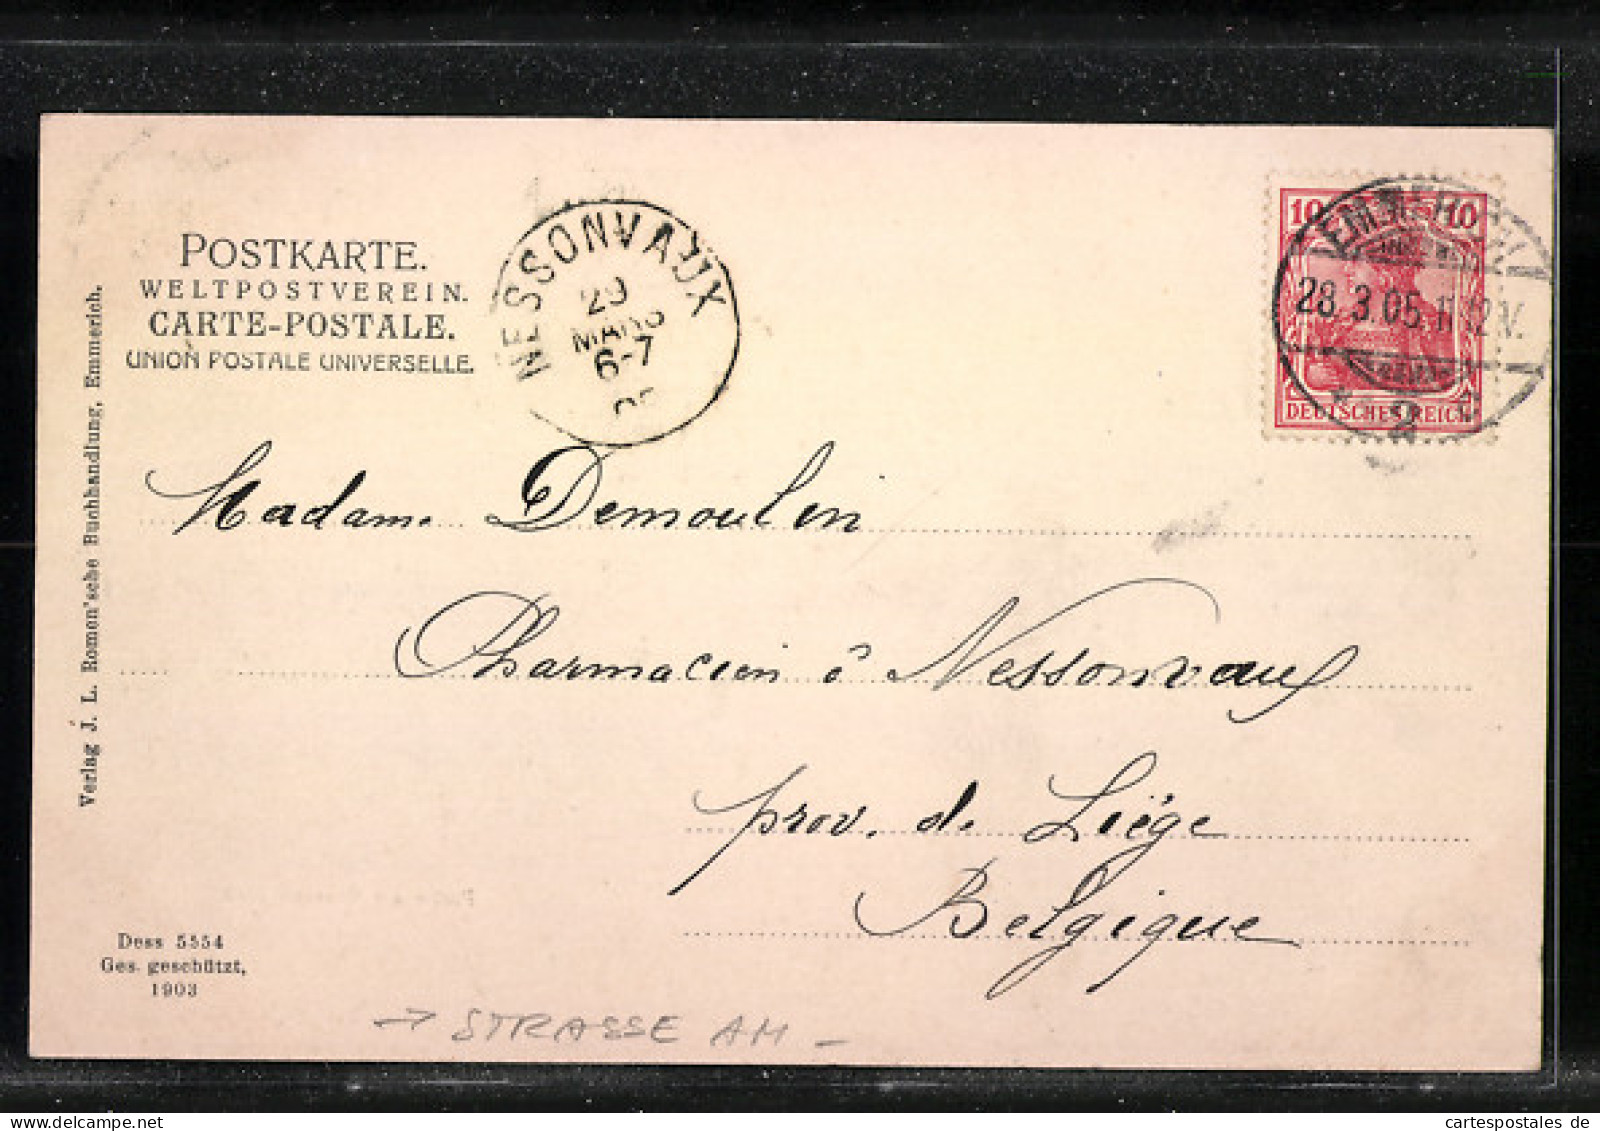 POSTKARTE.
WELTPOSTVEREIN.
CARTE-POSTALE.
UNION POSTALE UNIVERSELLE.
NESSONVAUX
29
MARS
6-7
10 10
EMMERICH
28.3.05.11-12V.
DEUTSCHES REICH
2
Madame Demoulin
Pharmacien à Nessonvaux
prov. de Liège
Belgique
Verlag J. L. Romen'sche Buchhandlung, Emmerich.
Dess 5554
Ges. geschützt,
1903
→ STRASSE AM –
cartespostales de